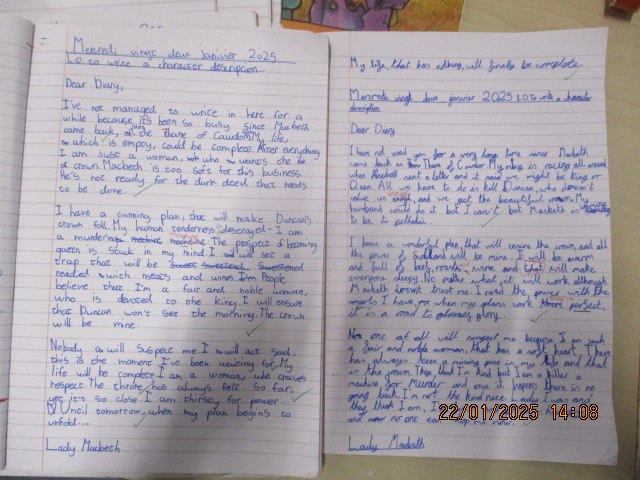 Mercredi vingt deux janvier 2025
LO to write a character
description
Dear Diary,
I've not managed to write in here for a
while because it's been so busy since Macbeth
came back, as the Thane of Cawdor. My life,
which is empty, could be complete. After everything
I am just a woman, who wants the
crown. Macbeth is too soft for this business.
He's not ready for the dark deed that needs
to be done.
I have a cunning plan, that will make Duncan's
crown fall. My human tenderness descrayed - I am
a murdering machine. The prospect of becoming
queen is stuck in my mind. I will set a
trap that will be
readied with meats and wines. People
believe that I'm a fair and noble woman,
who is devoted to the king. I will ensure
that Duncan won't see the morning. The crown
will be mine.
Nobody will suspect me. I will act sad,
this is the moment I've been waiting for. My
life will be compete. I am a woman, who craves
respect. The throne has always felt so far,
yet it's so close. I am thirsty for power...
Until tomorrow, when my plan begins to
unfold...
Lady Macbeth
My life, that has nothing, will finally be complete.
Mercredi vingt deux janvier 2025 LO To write a character
description
Dear Diary
I have not used you for a very long time since Macbeth
came back as Thane of Cawdor. My mind is racing all around
when Macbeth sent a letter and it said we might be King or
Queen. All we have to do is kill Duncan, who doesn't
value us and we get the beautiful crown. My
husband could do it but I can't but Macbeth is
to be to pathetic.
I have a wonderful plan, that will ensure the crown, and all
the power of Scotland will be mine. It will be warm
and full of beef, roasts, wine and that will make
everyone sleepy. No matter what, it will work although
Macbeth doesn't trust me. I need the power with the
smarts I have, for when my plans work perfect,
it is a road to glory.
No one at all will suspect me because I am such
a fair and noble woman, that has a soft heart. I have
has always been a meaning in my life and that
is the crown. They think I'm kind but I am a killer a
machine for Murder and once it happens there is no
going back. I'm not the kind nice Lady I was and
they think I am, I
and now no one can stop me now.
Lady Macbeth
22/01/2025 14:08